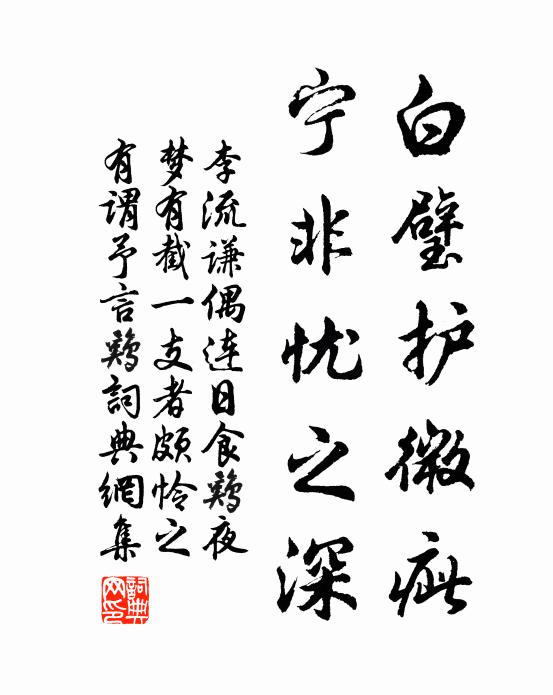 白璧护微疵
宁非忧之深
李流谦偶连日食鶏夜
梦有截一支者颇怜之
有谓予言鶏詞典網集
詞典网印